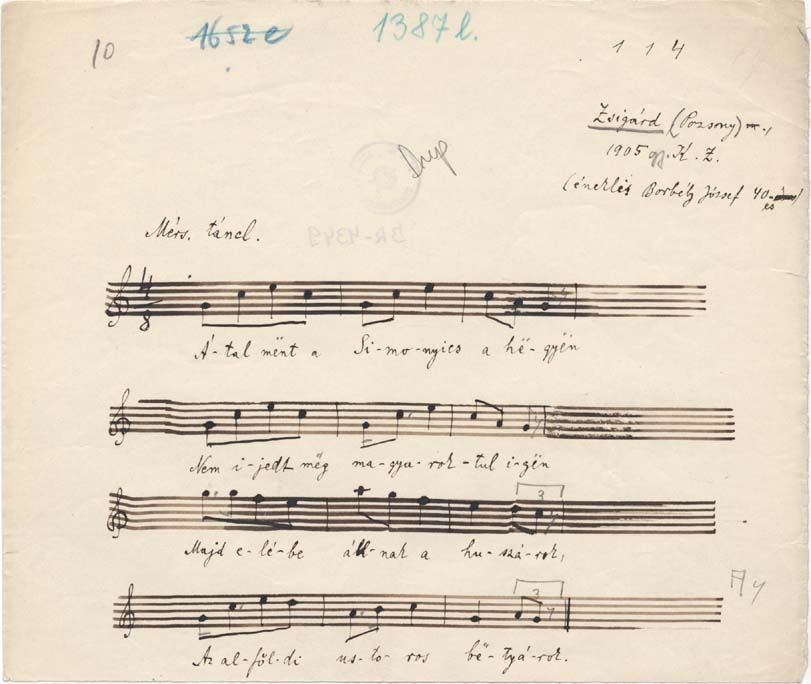 10
1652e
1387l.
114
Zsigárd (Pozsony) m.
1905 gy. K. Z.
(éneklés Borbély József 40-es
Dup
BR-4349
Mérs. táncl.
4/8
Á-tal mënt a Si-mo-nyics a hë-gyën
Nem i-jedt mëg ma-gya-rok-tul i-gën
3
Majd e-lé-be áll-nak a hu-szá-rok,
3
Az al-föl-di us-to-ros bë-tyá-rok.